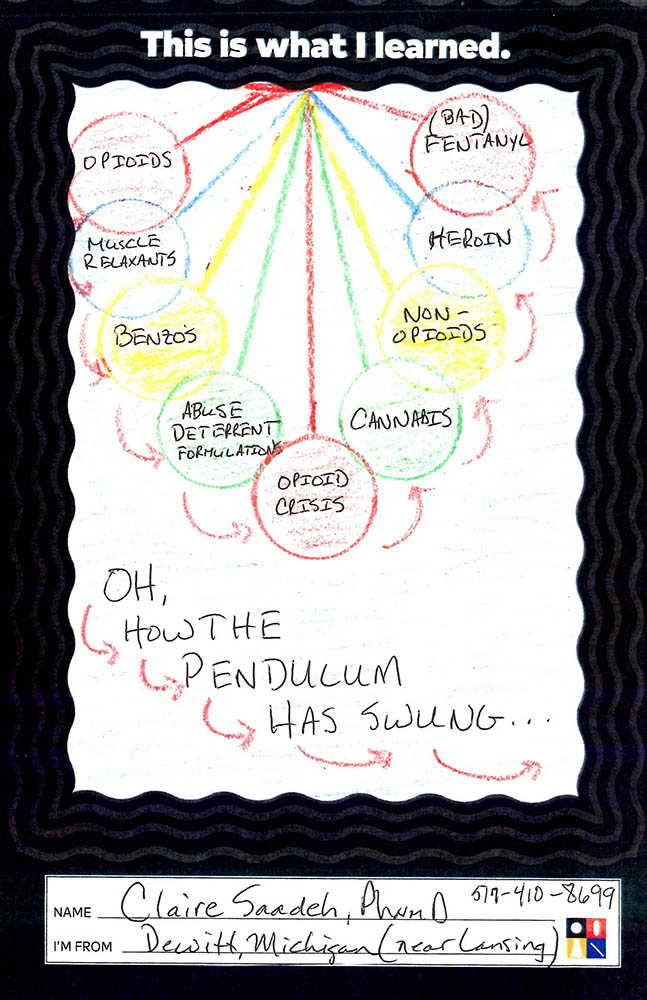 This is what I learned.
OPIOIDS
MUSCLE
RELAXANTS
BENZO'S
ABUSE
DETERRENT
FORMULATIONS
OPIOID
CRISIS
CANNABIS
NON-
OPIOIDS
HEROIN
(BAD)
FENTANYL
OH,
HOW THE
PENDULUM
HAS SWUNG...
NAME Claire Saadeh, PharmD 517-410-8699
I'M FROM Dewitt, Michigan (near Lansing)